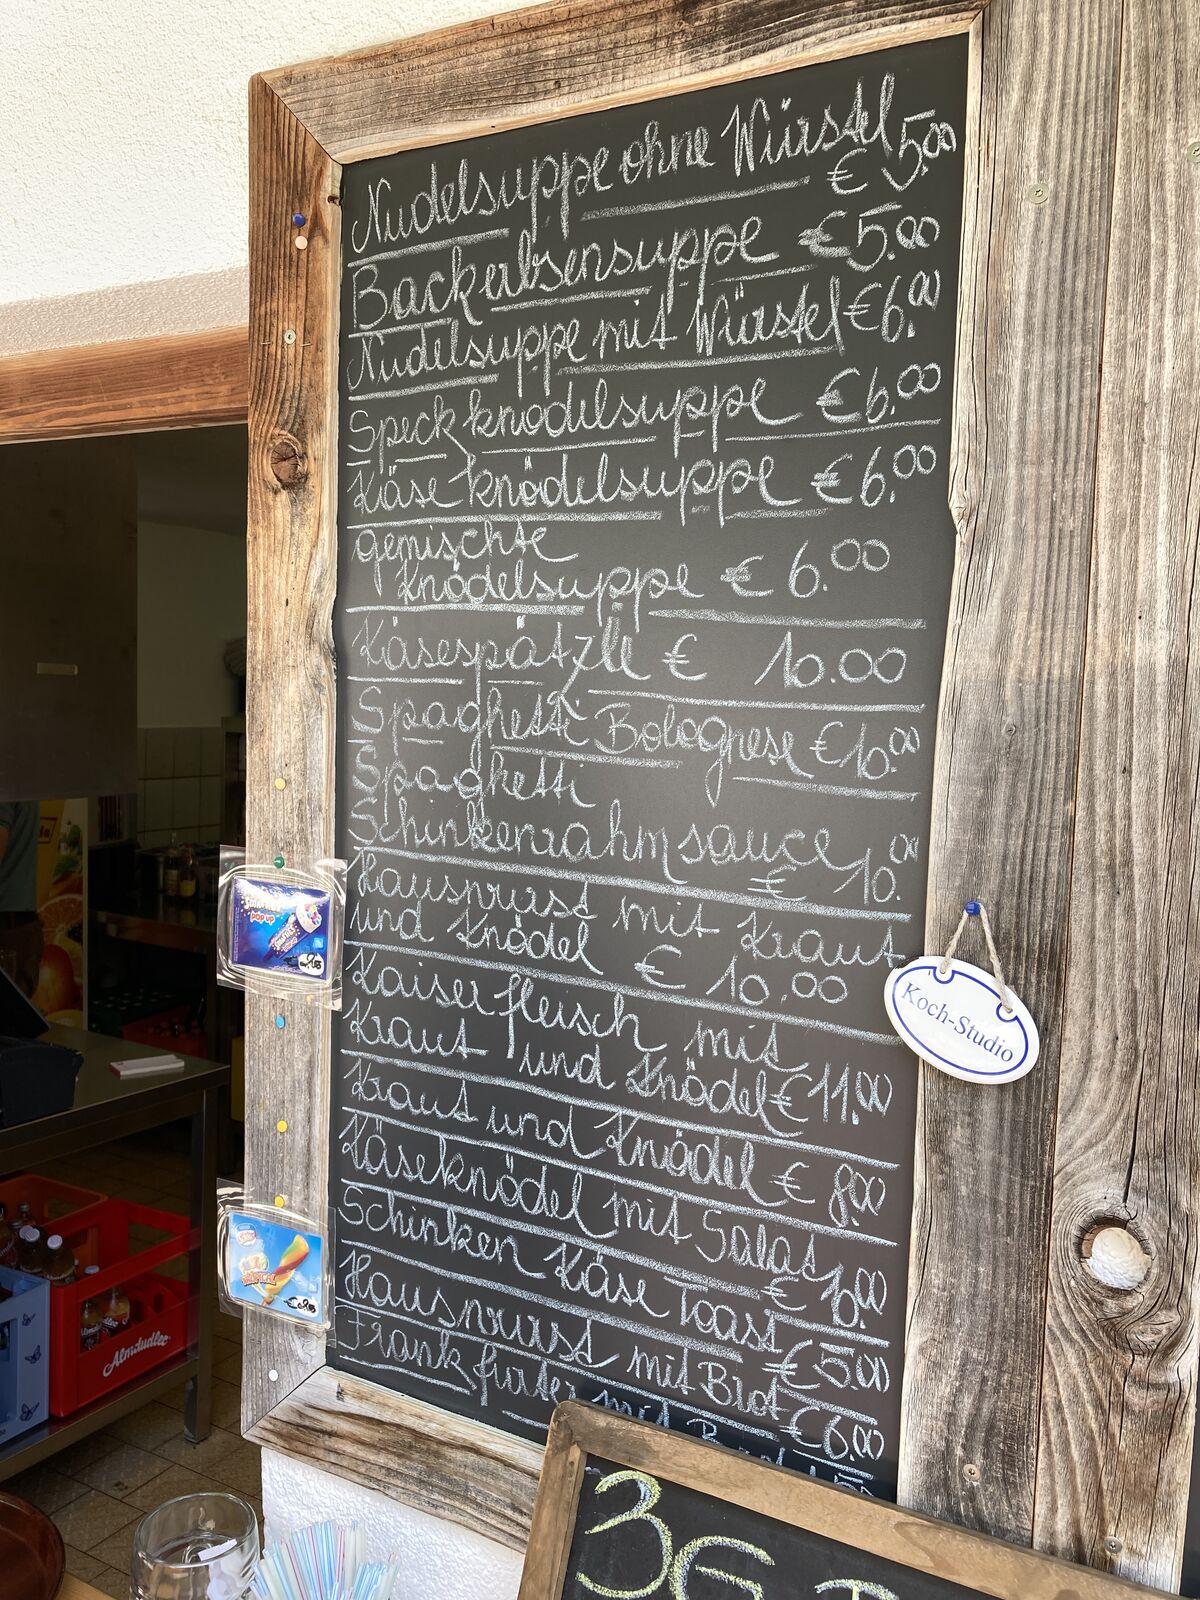 Nudelsuppe ohne Würstel
€ 5.00
Backerbsensuppe €5.00
Nudelsuppe mit Würstel €6.00
Speckknödelsuppe €6.00
Käseknödelsuppe €6.00
gemischte
Knödelsuppe € 6.00
Käsespätzle € 10.00
Spaghetti Bolognese €10.00
Spaghetti
Schinkenrahmsauce
€ 10.00
Hauswurst mit Kraut
und Knödel € 10.00
Kaiserfleisch mit
Kraut und Knödel €11.00
Kraut und Knödel € 8.00
Käseknödel mit Salat
€ 10.00
Schinken Käse Toast
€5.00
Hauswurst mit Brot
€6.00
Frankfurter mit
Koch-Studio
pop up
TROPICAL
Almdudler
3G